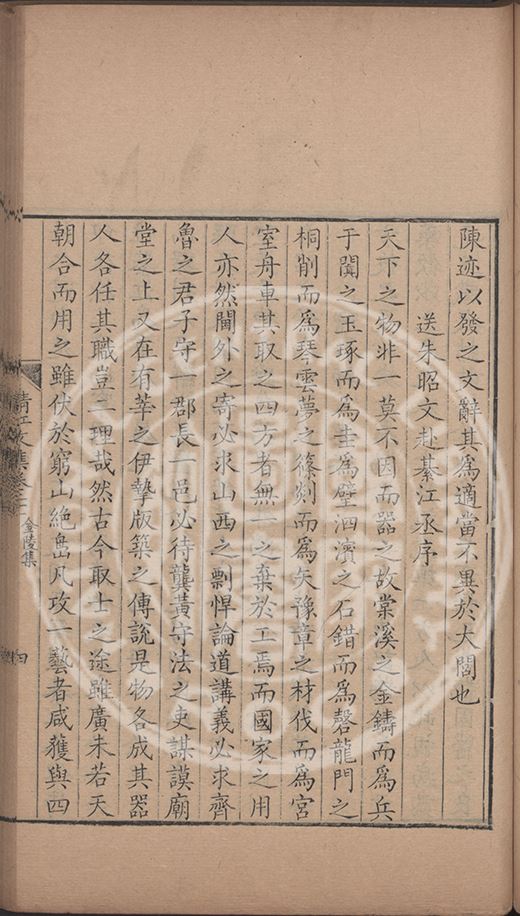 陳迹以發之文辭其爲適當不異於大閣也
送朱昭文赴綦江丞序
天下之物非一莫不因而器之故棠溪之金鑄而爲兵
于闐之玉琢而爲圭爲璧泗濱之石錯而爲磬龍門之
桐削而爲琴雲夢之篠剡而爲矢豫章之材伐而爲宮
室舟車其取之四方者無一之棄於工焉而國家之用
人亦然閫外之寄必求山西之剽悍論道講義必求齊
魯之君子守一郡長一邑必待龔黃守法之吏謀謨廟
堂之上又在有莘之伊摯版築之傅說是物各成其器
人各任其職豈二理哉然古今取士之途雖廣未若天
朝合而用之雖伏於窮山絕島凡攻一藝者咸獲與四
清江文集卷二十
金陵集
四